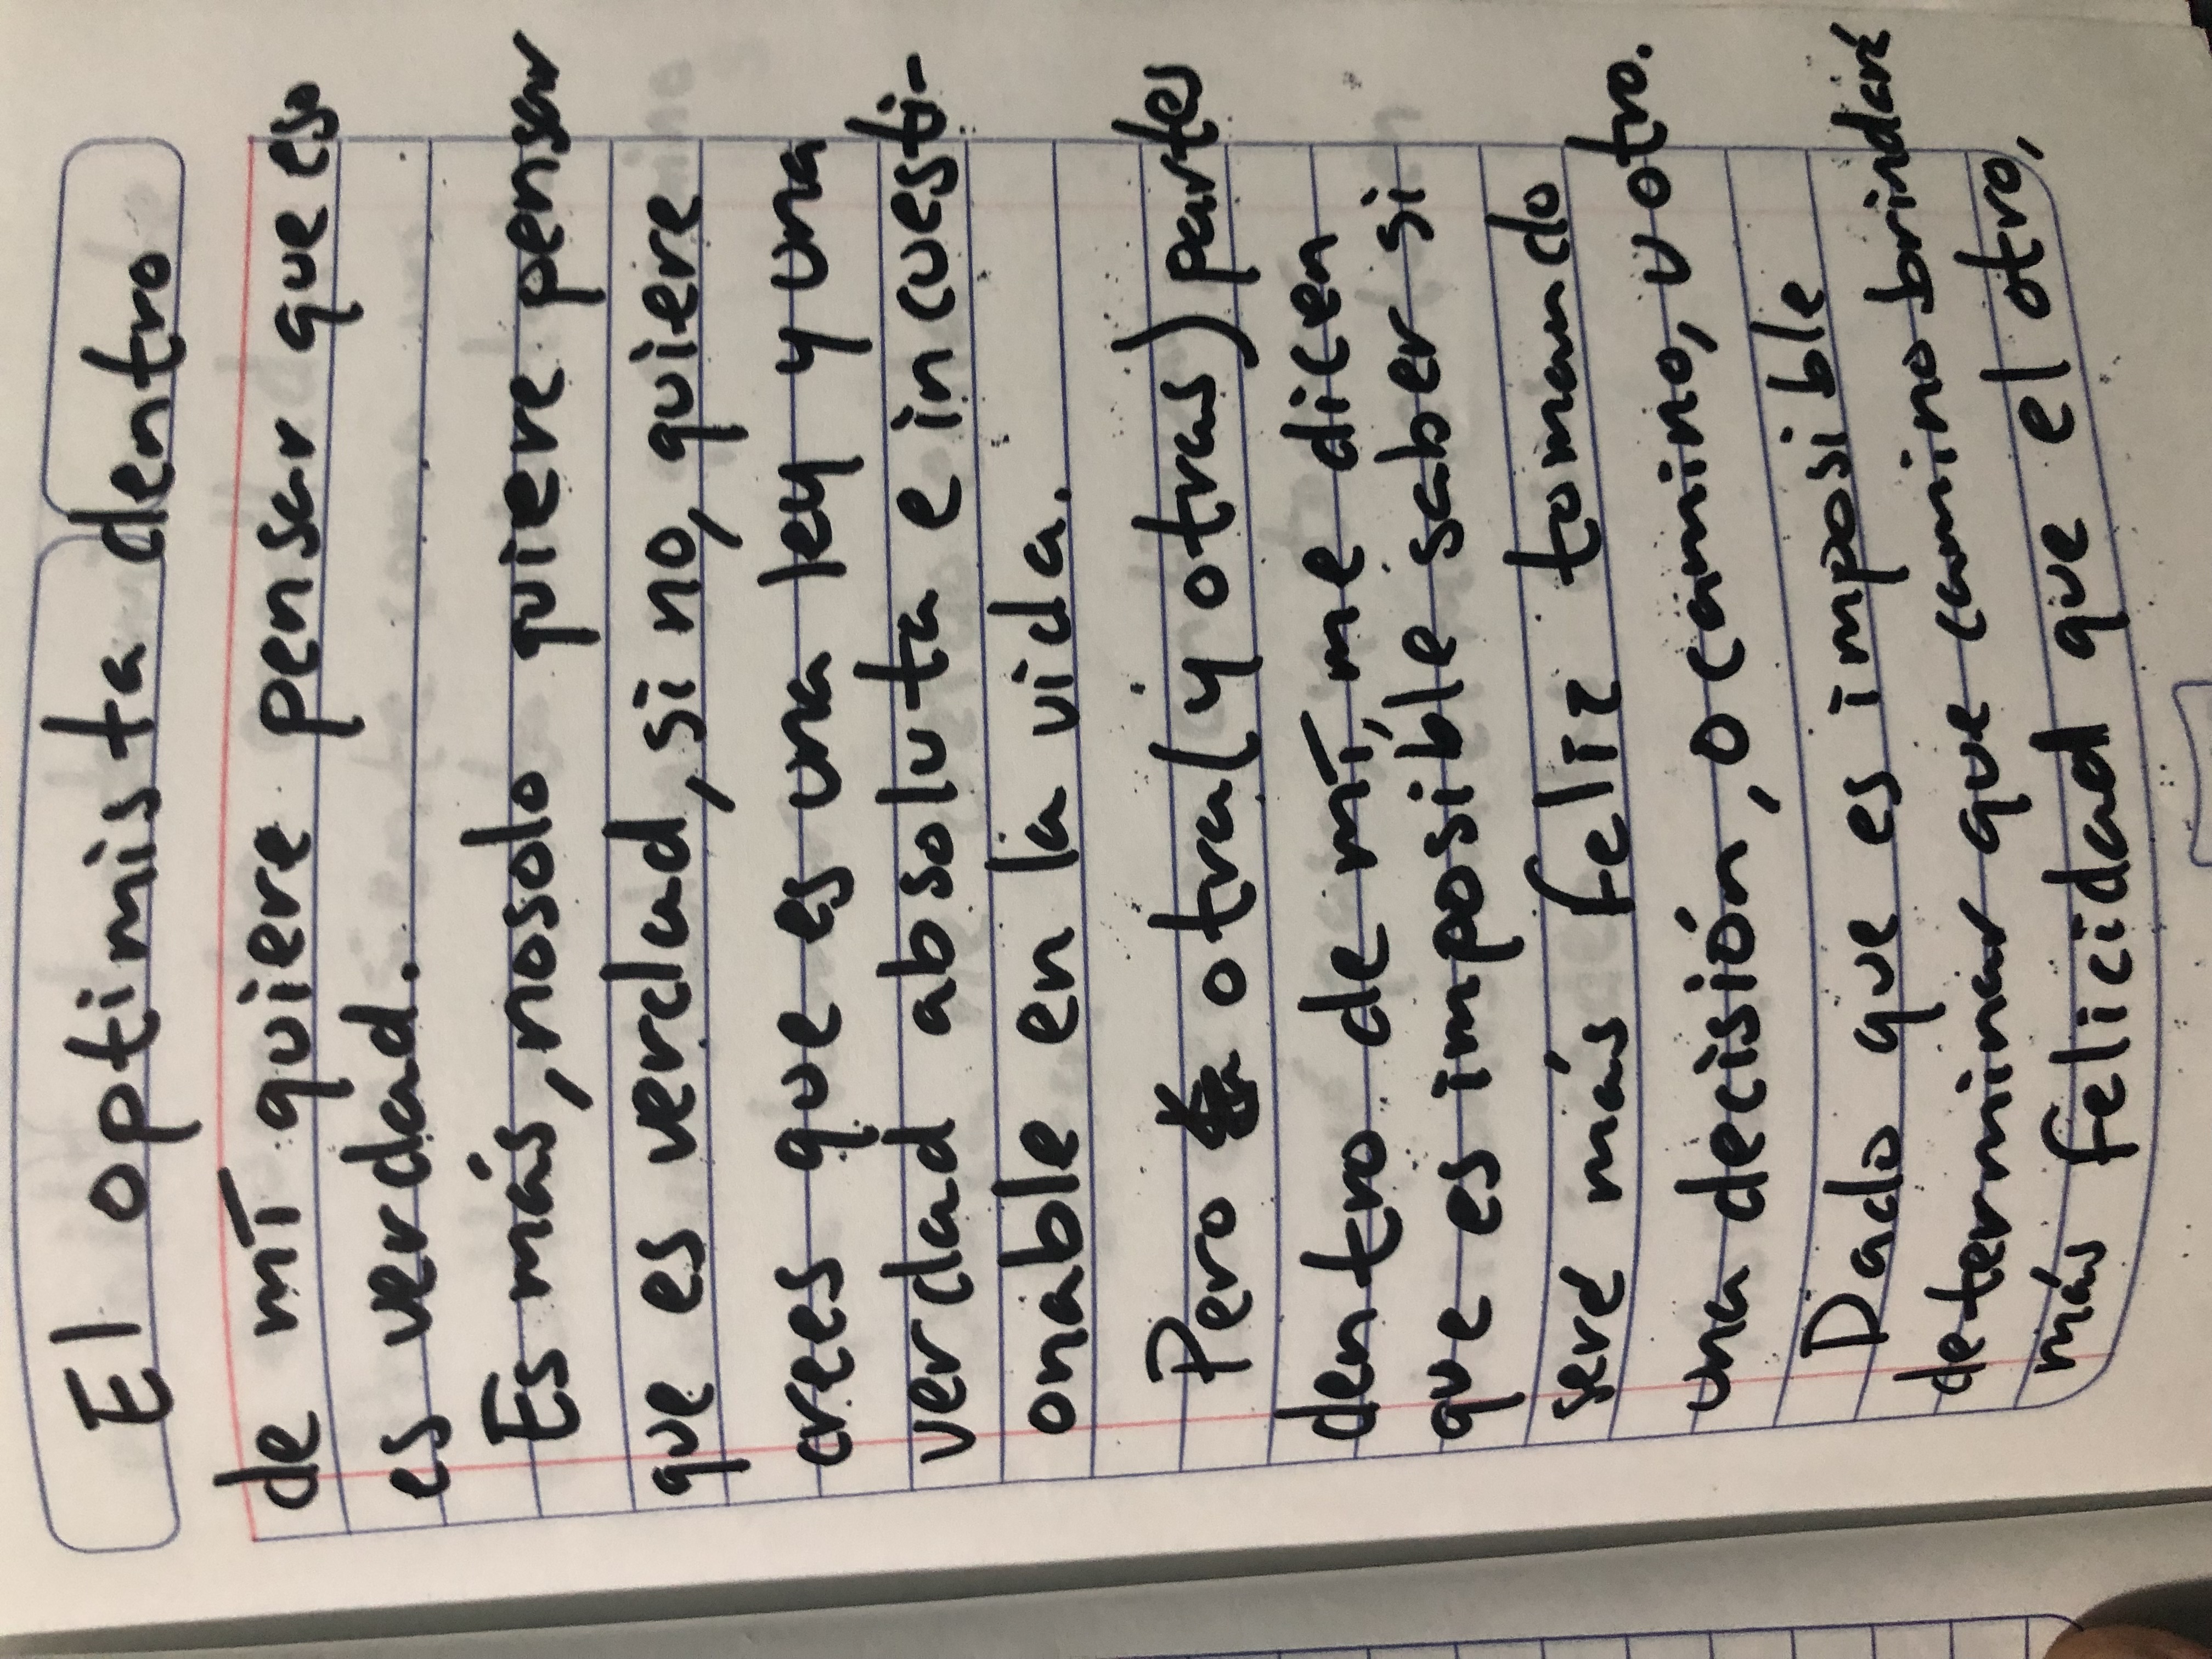 El optimista dentro
de mí quiere pensar que eso
es verdad.
Es más, no solo quiere pensar
que es verdad, si no, quiere
crees que es una ley y una
verdad absoluta e incuesti-
onable en la vida.
Pero otra (y otras) partes
dentro de mí, me dicen
que es imposible saber si
seré más feliz tomando
una decisión, o camino, u otro.
Dado que es imposible
determinar que camino brindará
más felicidad que el otro,